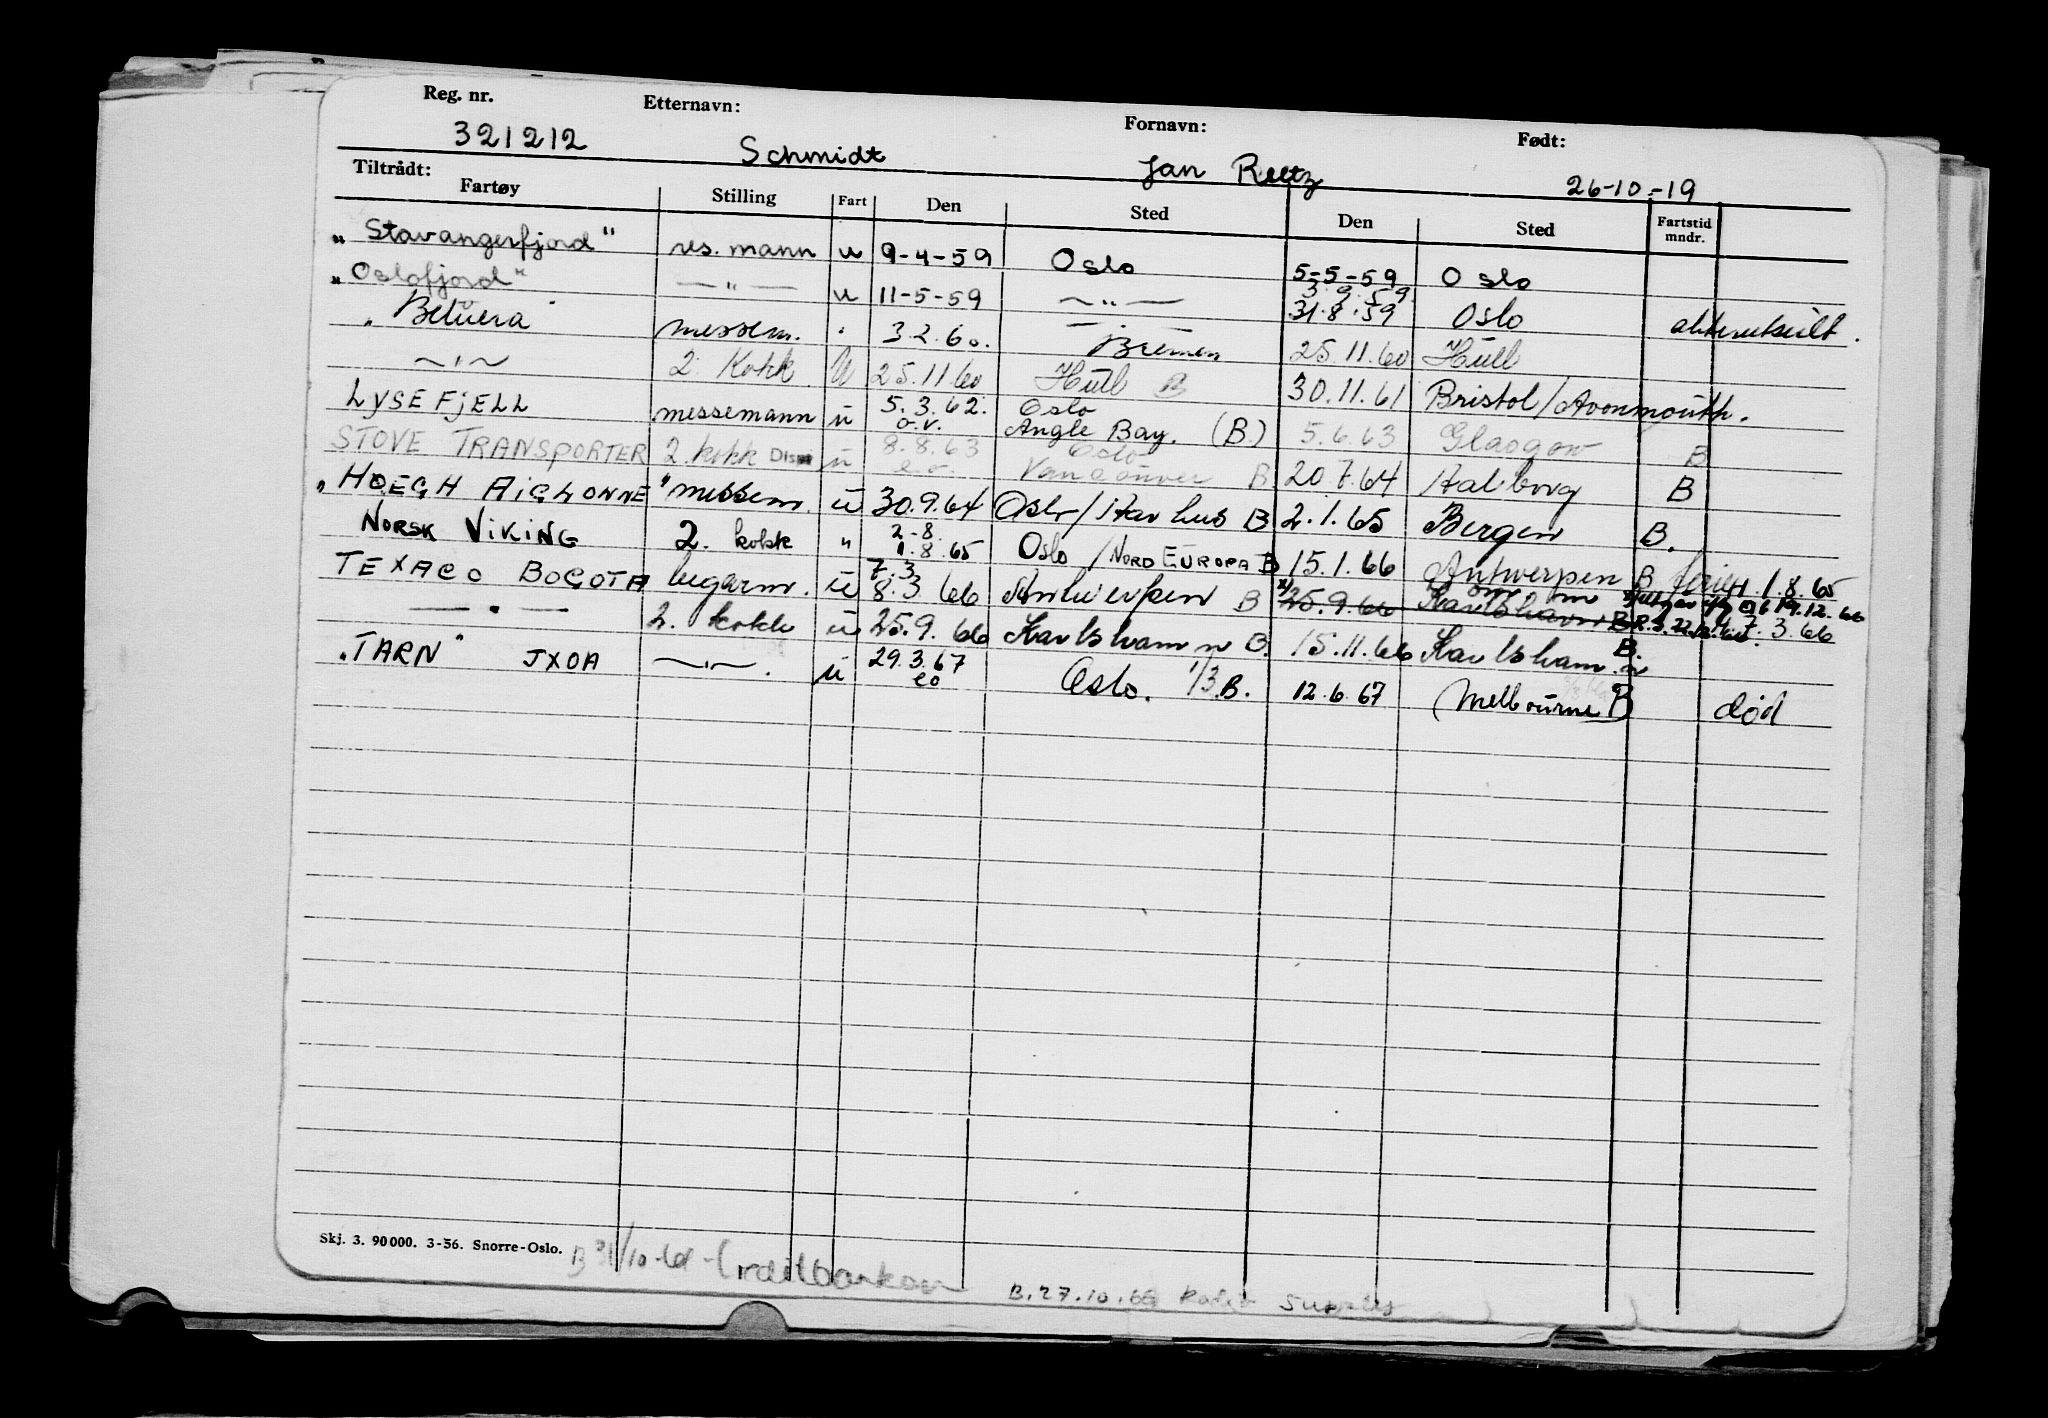 Reg. nr. Etternavn: Fornavn: Født:
321212 Schmidt Jan Reetz 26-10-19
Tiltrådt:
Fartøy Stilling Fart Den Sted Den Sted Fartstid mndr.
„Stavangerfjord" res. mann u 9-4-59 Oslo 5-5-59 Oslo
„Oslofjord" —"— u 11-5-59 —"— 3.9.59 31.8.59 Oslo
„Betuera messem. " 3.2.60. Bremen 25.11.60 Hull
—"— 2. Kokk U 25.11.60 Hull B 30.11.61 Bristol/Avonmouth.
LYSEFJELL messemann u 5.3.62. o.v. Oslo Angle Bay. (B.) 5.6.63 Glasgow B
STOVE TRANSPORTER 2. kokk u 8.8.63 e.o. Oslo Vancouver B 20.7.64 Aalborg B
„HOEGH AIGLONNE" messem. u 30.9.64 Oslo/Aarhus B 2.1.65 Bergen B.
NORSK VIKING 2. kokk " 2-8. 1.8.65 Oslo / NORD EUROPA B 15.1.66 Antwerpen B 1.8.65
TEXACO BOGOTA u 7.3 8.3.66 Antwerpen B 25.9.66 Karlshamn B 19.12.66
—"— 2. kokk u 25.9.66 Karlshamn B. 15.11.66 Karlshamn B. 7.3.66
„TARN" JXOA —"—. u 29.3.67 eo Oslo. 1/3 B. 12.6.67 Melbourne B død
Skj. 3. 90000. 3-56. Snorre-Oslo.
B 31/10-61
B. 27.10.66